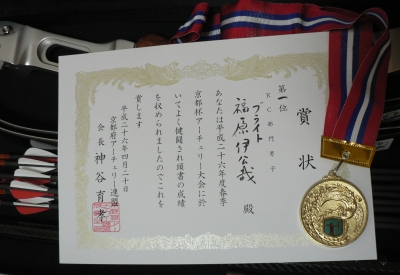 賞状
第一位
RC部門男子
ブライト
福原伊公義 殿
あなたは平成二十六年度春季
京都杯アーチェリー大会に於
いてよく健闘され頭書の成績
を収められましたのでこれを
賞します
平成二十六年四月二十日
京都府アーチェリー連盟
会長 神谷育孝